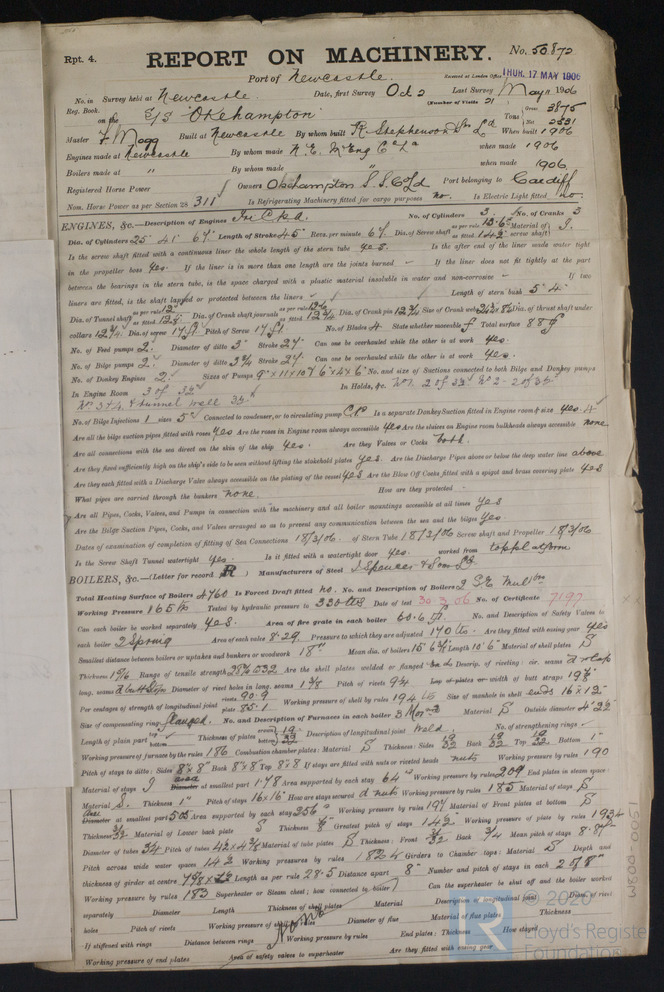 Rpt. 4.
REPORT ON MACHINERY.
No. 50872
Port of Newcastle.
Received at London Office THUR. 17 MAY 1906
No. in Survey held at Newcastle. Date, first Survey Oct 2 Last Survey May 11 1906
Reg. Book. (Number of Visits 21)
on the S/S Okehampton Tons Gross 3875 Net 2531
Master F. Mogg Built at Newcastle By whom built R. Stephenson & Co Ld When built 1906
Engines made at Newcastle By whom made N.E. M. Eng Co Ld when made 1906
Boilers made at " By whom made " when made 1906
Registered Horse Power Owners Okehampton S.S. Co Ld Port belonging to Cardiff
Nom. Horse Power as per Section 28 311 Is Refrigerating Machinery fitted for cargo purposes no. Is Electric Light fitted no.
ENGINES, &c.—Description of Engines No. of Cylinders 3 No. of Cranks 3
Dia. of Cylinders 25" 41" 67" Length of Stroke 45" Revs. per minute 67 Dia. of Screw shaft as per rule as fitted Material of screw shaft
Is the screw shaft fitted with a continuous liner the whole length of the stern tube yes. Is the after end of the liner made water tight
in the propeller boss yes. If the liner is in more than one length are the joints burned If the liner does not fit tightly at the part
between the bearings in the stern tube, is the space charged with a plastic material insoluble in water and non-corrosive If two
liners are fitted, is the shaft lapped or protected between the liners Length of stern bush 5' 4"
Dia. of Tunnel shaft as per rule as fitted Dia. of Crank shaft journals as per rule as fitted 12 3/4 Dia. of Crank pin 12 3/4 Size of Crank webs Dia. of thrust shaft under
collars 12 3/4 Dia. of screw 17 ft Pitch of Screw 17 ft. No. of Blades 4 State whether moveable Total surface 88
No. of Feed pumps 2. Diameter of ditto 3" Stroke 27" Can one be overhauled while the other is at work yes.
No. of Bilge pumps 2. Diameter of ditto 3 3/4 Stroke 27" Can one be overhauled while the other is at work yes.
No. of Donkey Engines 2. Sizes of Pumps No. and size of Suctions connected to both Bilge and Donkey pumps
In Engine Room 3 of 3 1/2" In Holds, &c. No 1. 2 of 3 1/2" No 2. 2 of 3 1/2"
No 3 & 4. & tunnel well 3 1/2"
No. of Bilge Injections 1 sizes 5" Connected to condenser, or to circulating pump C.P. Is a separate Donkey Suction fitted in Engine room & size yes 4"
Are all the bilge suction pipes fitted with roses yes Are the roses in Engine room always accessible yes Are the sluices on Engine room bulkheads always accessible none
Are all connections with the sea direct on the skin of the ship yes. Are they Valves or Cocks both.
Are they fixed sufficiently high on the ship's side to be seen without lifting the stokehold plates yes. Are the Discharge Pipes above or below the deep water line above
Are they each fitted with a Discharge Valve always accessible on the plating of the vessel yes Are the Blow Off Cocks fitted with a spigot and brass covering plate yes
What pipes are carried through the bunkers none. How are they protected
Are all Pipes, Cocks, Valves, and Pumps in connection with the machinery and all boiler mountings accessible at all times yes
Are the Bilge Suction Pipes, Cocks, and Valves arranged so as to prevent any communication between the sea and the bilges yes
Dates of examination of completion of fitting of Sea Connections 18/3/06. of Stern Tube 18/3/06 Screw shaft and Propeller 18/3/06
Is the Screw Shaft Tunnel watertight yes. Is it fitted with a watertight door yes. worked from top platform
BOILERS, &c.—(Letter for record R) Manufacturers of Steel J Spencer & Sons Ld
Total Heating Surface of Boilers 4760 Is Forced Draft fitted no. No. and Description of Boilers 2 S.E. mult
Working Pressure 165 lbs Tested by hydraulic pressure to 330 lbs Date of test 30.3.06 No. of Certificate 7197
Can each boiler be worked separately yes. Area of fire grate in each boiler 60.6 No. and Description of Safety Valves to
each boiler 2 Spring Area of each valve 8.29 Pressure to which they are adjusted 170 lbs. Are they fitted with easing gear yes
Smallest distance between boilers or uptakes and bunkers or woodwork 18" Mean dia. of boilers Length 10' 6" Material of shell plates S
Thickness Range of tensile strength Are the shell plates welded or flanged Descrip. of riveting: cir. seams d r lap
long. seams Diameter of rivet holes in long. seams 1 3/8 Pitch of rivets 9 1/4 Lap of plates or width of butt straps
Per centages of strength of longitudinal joint rivets 90.9 plate 85.1 Working pressure of shell by rules 194 lbs Size of manhole in shell ends 16 x 12"
Size of compensating ring flanged. No. and Description of Furnaces in each boiler 3 Material S Outside diameter
Length of plain part top bottom Thickness of plates crown bottom Description of longitudinal joint Weld. No. of strengthening rings
Working pressure of furnace by the rules 186 Combustion chamber plates: Material S Thickness: Sides Back Top Bottom 1"
Pitch of stays to ditto: Sides 8" x 8" Back 8" x 8" Top 8" x 8" If stays are fitted with nuts or riveted heads nuts Working pressure by rules 190
Material of stays at smallest part 1.78 Area supported by each stay 64" Working pressure by rules 209 End plates in steam space:
Material S. Thickness 1" Pitch of stays 16 x 16" How are stays secured d nuts Working pressure by rules 185 Material of stays S
at smallest part Area supported by each stay 256" Working pressure by rules 197 Material of Front plates at bottom S
Thickness Material of Lower back plate S Thickness Greatest pitch of stays Working pressure of plate by rules
Diameter of tubes 3 1/4 Pitch of tubes Material of tube plates S Thickness: Front Back 3/4 Mean pitch of stays
Pitch across wide water spaces 14 1/2 Working pressures by rules Girders to Chamber tops: Material S Depth and
thickness of girder at centre Length as per rule 28.5 Distance apart 8" Number and pitch of stays in each 2 of 8"
Working pressure by rules 183 Superheater or Steam chest; how connected to boiler Can the superheater be shut off and the boiler worked
separately Diameter Length Thickness of shell plates Material Description of longitudinal joint Diam. of rivet
holes Pitch of rivets Working pressure of shell by rules Diameter of flue Material of flue plates Thickness
None
If stiffened with rings Distance between rings Working pressure by rules End plates: Thickness How stayed
Working pressure of end plates Area of safety valves to superheater Are they fitted with easing gear
W500-0051
© 2020
Lloyd's Register
Foundation